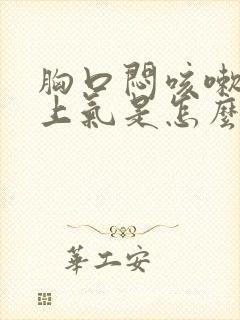 胸口悶咳嗽
上氣是怎麼
華工安